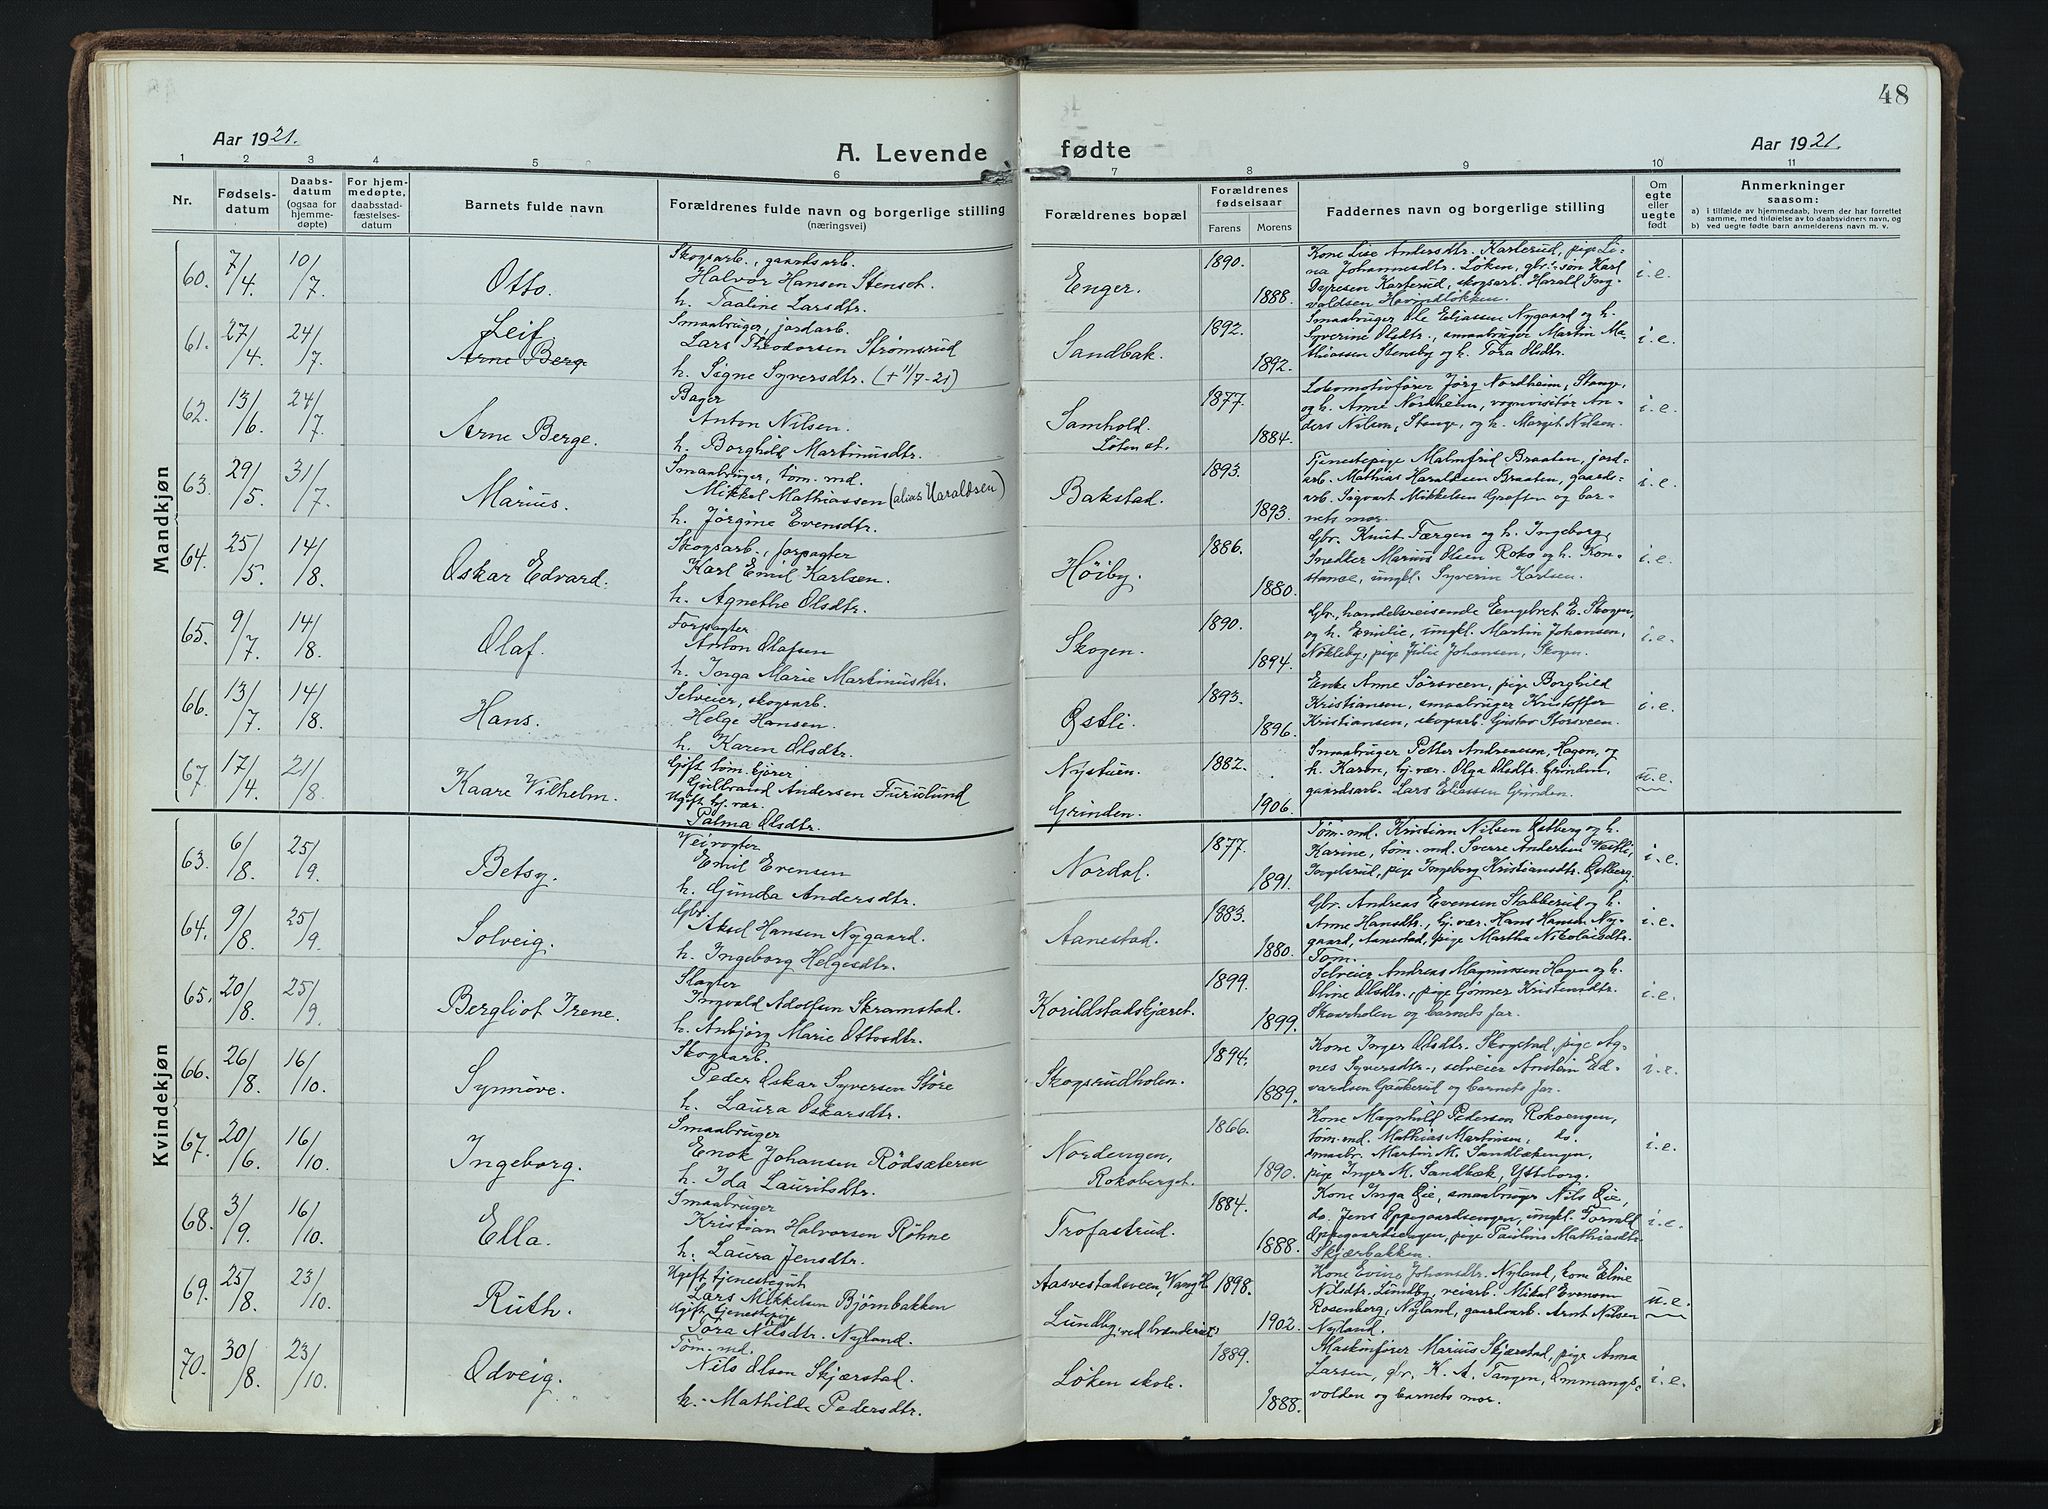 48
Aar 1921.
A. Levende fødte
Aar 1921.
1 2 3 4 5 6 7 8 9 10 11
Nr.
Fødselsdatum
Daabsdatum (ogsaa for hjemmedøpte)
For hjemmedøpte, daabsstadfæstelsesdatum
Barnets fulde navn
Forældrenes fulde navn og borgerlige stilling
(næringsvei)
Forældrenes bopæl
Forældrenes fødselsaar
Farens Morens
Faddernes navn og borgerlige stilling
Om egte eller uegte født
Anmerkninger
saasom:
a) i tilfælde av hjemmedaab, hvem der har forrettet samme, med tilføielse av to daabsvidners navn, og
b) ved uegte fødte barn anmelderens navn m. v.
Mandkjøn
60. 7/4. 10/7 Otto.
Skogsarb., gaardsarb.
Halvor Hansen Stenset.
h. Taaline Larsdtr.
Enger. 1890. 1888.
Kone Lise Andersdtr. Karterud, pige Li-
na Johannesdtr. Løken, gbr. søn Karl
Syresen Karterud, skogsarb. Harald Ing-
valdsen
i.e.
61. 27/4. 24/7 Leif
Arne Berge
Smaabruger, jordarb.
Lars Theodorsen Strømsrud
h. Signe Syversdtr. (+ 11/7-21)
Sandbak. 1892. 1892.
Smaabruger Ole Eliassen Nygaard og h.
Syverine Olsdtr., smaabruger Martin Ma-
thiassen Stensby og h. Tora Olsdtr.
i.e.
62. 13/6. 24/7 Arne Berge.
Bager
Anton Nilsen.
h. Borghild Martinusdtr.
Samhold.
Løten st. 1877. 1884.
Lokomotivfører Jørg Nordheim, Stange,
og h. Anne Nordheim, vognvisitør An-
ders Nilsen, Stange, og h. Margit Nilsen.
i.e.
63. 29/5. 31/7 Marius.
Smaabruger, tøm. md.
Mikkel Mathiassen (alias Haraldsen)
h. Jørgine Evensdtr.
Bakstad. 1893. 1893.
Tjenestepige Malmfrid Braaten, jord-
arb. Mathias Haraldsen Braaten, gaards-
arb. Sigvart Mikkelsen Grafsen og bar-
nets mor.
i.e.
64. 25/5. 14/8. Oskar Edvard.
Skogsarb., forpagter
Karl Emil Karlsen.
h. Agnethe Olsdtr.
Høiby. 1886. 1880.
Gbr. Knut Færgen og h. Ingeborg,
snedker Marius Olsen Roko og h. Kon-
stance, ungk. Syverin Karlsen.
i.e.
65. 9/7. 14/8. Olaf.
Forpagter
Anton Olafsen
h. Inga Marie Martinusdtr.
Skogen. 1890. 1894.
Gbr., handelsreisende Engebret E. Skogen,
og h. Emilie, ungk. Martin Johansen,
Nøkleby, pige Julie Johansen, Skogen.
i.e.
66. 13/7. 14/8. Hans.
Selveier, skogsarb.
Helge Hansen.
h. Karen Olsdtr.
Østli. 1893. 1896.
Enke Anne Sørsveen, pige Borghild
Kristiansen, smaabruger Kristoffer
Kristiansen, skogsarb. Gustav Storsveen.
i.e.
67 17/4. 21/8. Kaare Vilhelm.
Gift tøm. kjører
Gulbrand Andersen Furulund
Ugift hj. vær.
Palma Olsdtr.
Nystuen. 1882.
Grinden. 1906.
Smaabruger Petter Andreassen, Hagen, og
h. Karen, hj. vær. Olga Olsdtr. Grinden,
gaardsarb. Lars Eliassen Grinden.
u.e.
Kvindekjøn
63. 6/8. 25/9. Betsy.
Veivogter
Emil Evensen
h. Gunda Andersdtr.
Nordal. 1877. 1891.
Tøm. md. Kristian Nilsen Østberg og h.
Karine, tøm. md. Sverre Andersen Vestli,
Ingelsrud, pige Ingeborg Kristiansdtr. Østberg.
i.e.
64. 9/8. 25/9. Solveig.
Gbr.
Aksel Hansen Nygaard.
h. Ingeborg Helgesdtr.
Aanestad. 1883. 1880.
Gbr. Andreas Evensen Stabberud og h.
Anne Hansdtr., hj. vær. Hans Hansen Ny-
gaard, Aanestad, pige Martha Nikolaisdtr.
Tøm.
i.e.
65. 20/8. 25/9. Bergliot Irene.
Slagter
Ingvald Adolfsen Skramstad.
h. Anbjørg Marie Ottosdtr.
Korildstadskjæret. 1899. 1899.
Selveier Andreas Magnussen Hagen og h.
Oline Olsdtr., pige Gønner Kristensdtr.
Skaarholen og barnets far.
i.e.
66. 26/8. 16/10. Synnøve.
Skogsarb.
Peder Oskar Syversen Støre
h. Laura Oskarsdtr.
Skogsrudholen. 1894. 1889.
Kone Inger Olsdtr. Skogstad, pige Ag-
nes Syversdtr., selveier Arnstein Ed-
vardsen Gaukerud og barnets far.
i.e.
67. 20/6. 16/10. Ingeborg.
Smaabruger
Enok Johansen Rødsæteren
h. Ida Lauritsdtr.
Nordengen,
Rokoberget. 1866. 1890.
Kone Magnhild Pedersen Rokoengen,
tøm. md. Mathias Martinsen, do.
smaabr. Martin M. Sandbækengen,
pige Inger M. Sandbæk, Ytteborg.
i.e.
68. 3/9. 16/10. Ella.
Smaabruger
Kristian Halvorsen Røhne
h. Laura Jensdtr.
Trofastrud. 1884. 1888.
Kone Inga Øie, smaabruger Nils Øie,
do. Jens Oppegaardsengen, ungk. Torvald
Oppegaardsengen, pige Pauline Mathiasdtr.
Skjærbakken.
i.e.
69. 25/8. 23/10. Ruth.
Ugift tjenestegut
Lars Mikkelsen Bjørnbakken
Ugift tjenestepige
Tora Nilsdtr. Nyland.
Aasvestadsveen, Vang H. 1898.
Lundby, ved brænderiet 1902.
Kone Evine Johansdtr. Nyland, kone Eline
Nilsdtr. Lundby, veiarb. Mikal Evensen
Rosenberg, Nyland, gaardsarb. Arnt Nilsen
Nyland.
u.e.
70. 30/8. 23/10. Odveig.
Tøm. md.
Nils Olsen Skjærstad.
h. Mathilde Pedersdtr.
Løken skole. 1889. 1888.
Maskinfører Marius Skjærstad, pige Anna
Larsen, gbr. K. A. Tangen, Ommangs-
volden og barnets mor.
i.e.